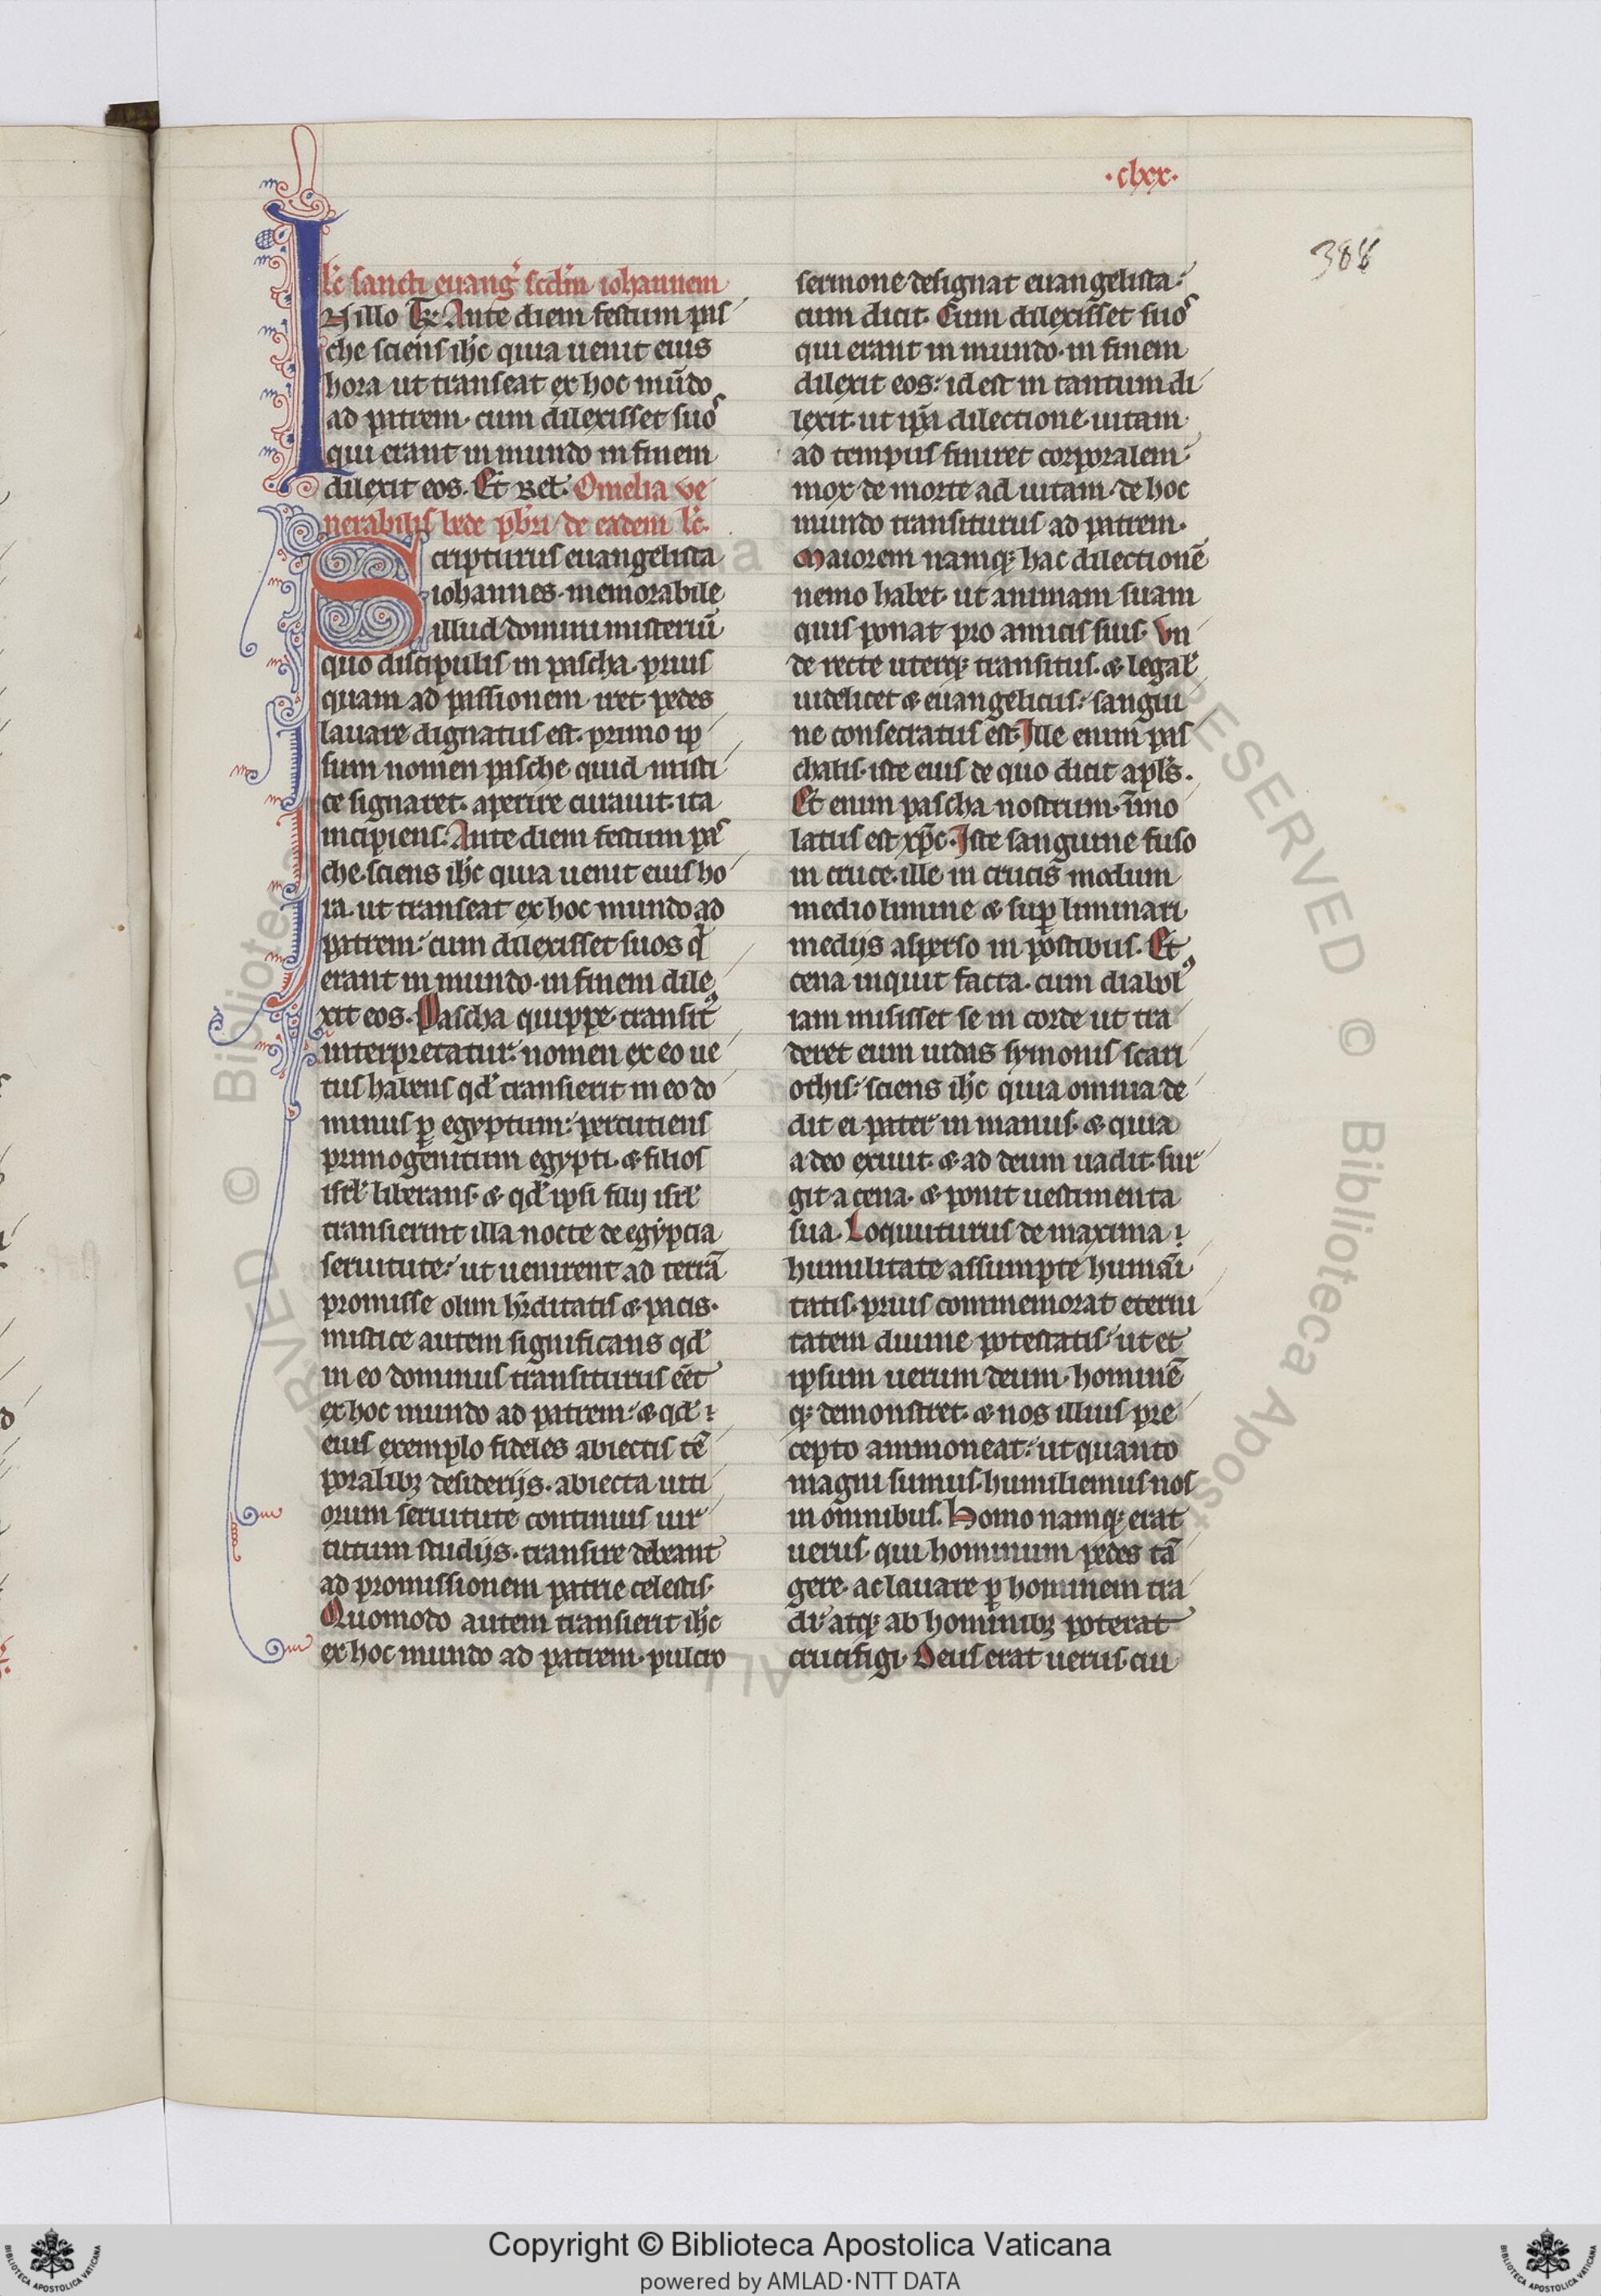 ·clxx·
388
lc̄ sancti euang̾ scd̄m iohannem
IN illo t̄p̄r. Ante diem festum pas
che sciens ih̄c quia uenit eius
hora ut transeat ex hoc mūdo
ad patrem. cum dilexisset suos
qui erant in mundo in finem
dilexit eos. Et rel̄. Omelia ve
nerabilis bede p̄br̄i de eadem lc̄.
Scripturus euangelista
iohannes. memorabile
illud domini misteriū
quo discipulis in pascha. prius
quam ad passionem iret. pedes
lauare dignatus est. primo ip
sum nomen pasche quid misti
ce signaret. aperire curauit. ita
incipiens. Ante diem festum pas
che. sciens ih̄c quia uenit eius ho
ra. ut transeat ex hoc mundo ad
patrem. cum dilexisset suos qⁱ
erant in mundo. in finem dile
xit eos. Pascha quippe transitꝰ
interpretatur. nomen ex eo ue
tus habens qd̾ transierit in eo do
minus ꝑ egyptum. percutiens
primogenitum egypti. & filios
isrl̾ liberans. & qd̾ ipsi filij isrl̾
transierint illa nocte de egyptia
seruitute. ut uenirent ad terrā
promisse olim hr̄ditatis & pacis.
mistice autem significans qd̾
in eo dominus transiturus eēt
ex hoc mundo ad patrem. & qd̾
eius exemplo fideles abiectis tē
poralibꝫ desiderijs. abiecta uiti
orum seruitute continuis uir
tutum studijs. transire debeant
ad promissionem patrie celestis.
Quomodo autem transierit ih̄c
ex hoc mundo ad patrem. pulcro
sermone designat euangelista.
cum dicit. Cum dilexisset suos
qui erant in mundo. in finem
dilexit eos. id est in tantum di
lexit. ut ip̄a dilectione. uitam
ad tempus finiret corporalem.
mox de morte ad uitam. de hoc
mundo transiturus ad patrem.
Maiorem namqꝫ hac dilectionē
nemo habet. ut animam suam
quis ponat pro amicis suis. Vn
de recte uterqꝫ transitus. & legal̾
uidelicet & euangelicus. sangui
ne consecratus est. Ille enim pas
chalis. iste eius de quo dicit apl̄s.
Et enim pascha nostrum. īmo
latus est xp̄c. Iste sanguine fuso
in cruce. ille in crucis modum
medio limine & suꝑ liminari
medijs asperso in postibus. Et
cena inquit facta. cum diabolꝰ
iam misisset se in corde ut tra
deret eum iudas symonis scari
othis. sciens ih̄c quia omnia de
dit ei pater in manus. & quia
a deo exiuit. & ad deum uadit. sur
git a cena. & ponit uestimenta
sua. Loquuturus de maxima
humilitate assumpte humāi
tatis. prius commemorat eterni
tatem diuine potestatis. ut et
ipsum uerum deum. hominē
qꝫ demonstret. & nos illius pre
cepto ammoneat. ut quanto
magni sumus. humiliemus nos
in omnibus. Homo namqꝫ erat
uerus. qui hominum pedes tā
gere. ac lauare ꝑ hominem tra
di. atqꝫ ab hominibꝫ poterat
crucifigi. Deus erat uerus. cui
Copyright © Biblioteca Apostolica Vaticana
powered by AMLAD·NTT DATA